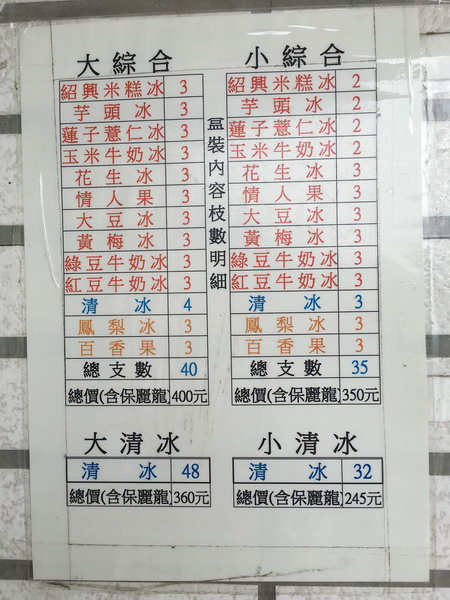 大綜合
紹興米糕冰 3
芋頭冰 3
蓮子薏仁冰 3
玉米牛奶冰 3
花生冰 3
情人果 3
大豆冰 3
黃梅冰 3
綠豆牛奶冰 3
紅豆牛奶冰 3
清冰 4
鳳梨冰 3
百香果 3
總支數 40
總價(含保麗龍) 400元
盒裝內容枝數明細
小綜合
紹興米糕冰 2
芋頭冰 2
蓮子薏仁冰 2
玉米牛奶冰 2
花生冰 3
情人果 3
大豆冰 3
黃梅冰 3
綠豆牛奶冰 3
紅豆牛奶冰 3
清冰 3
鳳梨冰 3
百香果 3
總支數 35
總價(含保麗龍) 350元
大清冰
清冰 48
總價(含保麗龍) 360元
小清冰
清冰 32
總價(含保麗龍) 245元